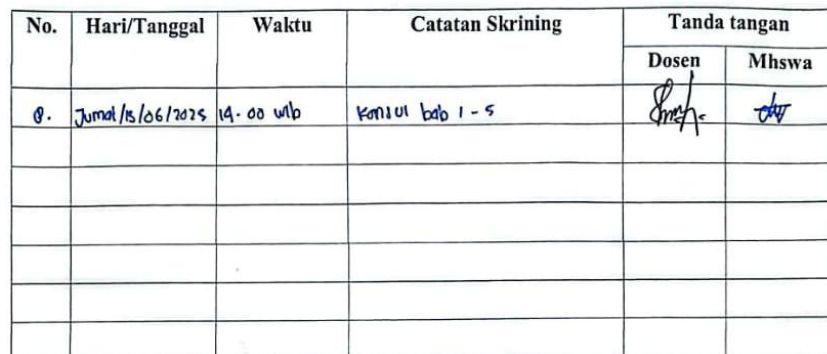 No. Hari/Tanggal Waktu Catatan Skrining Tanda tangan
Dosen Mhswa
8. Jumat/13/06/2025 14.00 wib Konsul bab 1 - 5